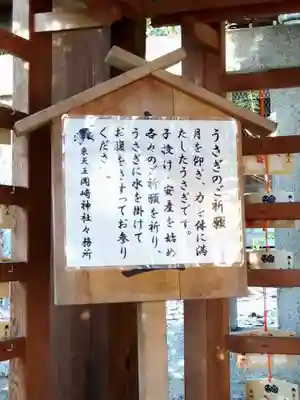 うさぎのご祈願
月を仰ぎ、力を体に満
たしたうさぎです。
子授け・安産を始め
各々のご祈願を祈り、
うさぎに水を掛けて
お腹をさすってお参り
ください。
東天王岡崎神社々務所